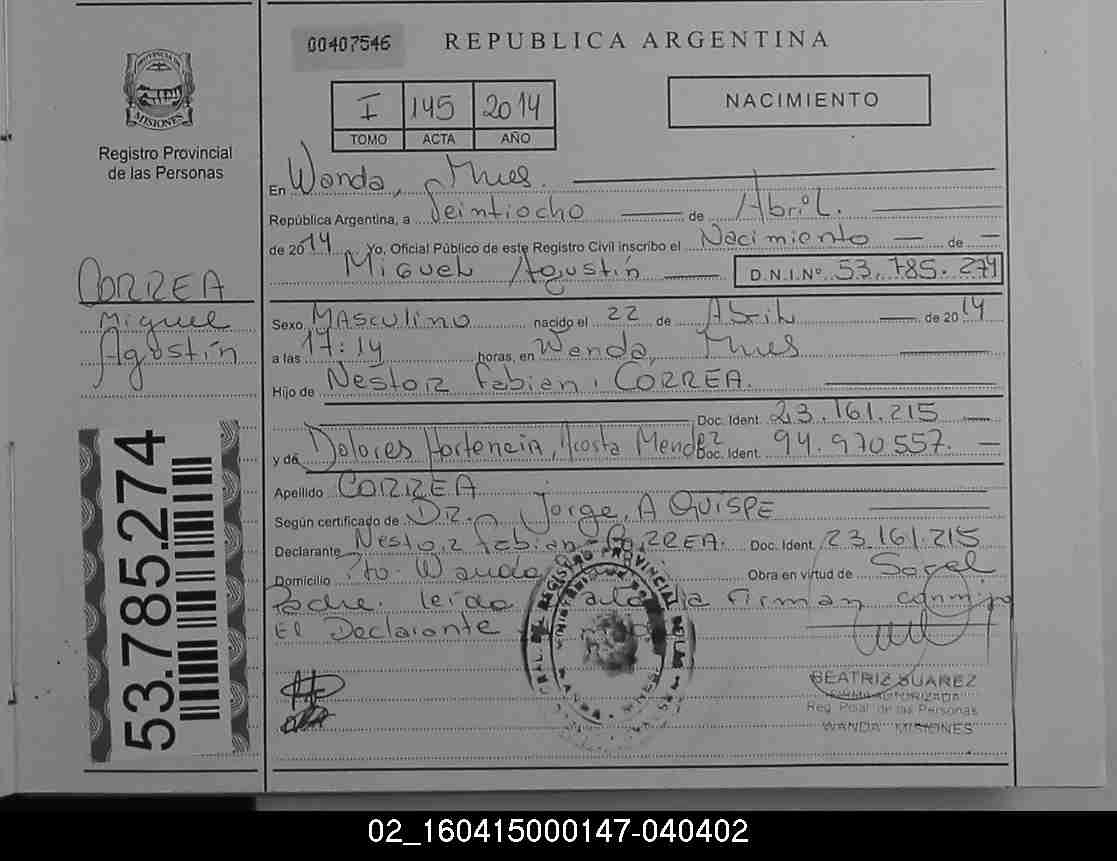 00407546
REPUBLICA ARGENTINA
PROVINCIA DE
MISIONES
Registro Provincial
de las Personas
I 145 2014
TOMO ACTA AÑO
NACIMIENTO
En Wanda, Mnes.
República Argentina, a Veintiocho de Abril.
de 2014 Yo, Oficial Público de este Registro Civil inscribo el Nacimiento de
Miguel Agustín D.N.I.Nº 53.785.274
CORREA
Miguel
Agustín
Sexo Masculino nacido el 22 de Abril de 2014
a las 17:14 horas, en Wanda, Mnes
Hijo de Nestor Fabian, CORREA.
Doc. Ident. 23.161.215
y de Dolores Hortencia, Acosta Mendez Doc. Ident. 94.970.557.
Apellido CORREA
Según certificado de DR. Jorge, A QUISPE
Declarante Nestor Fabian CORREA. Doc. Ident. 23.161.215
Domicilio Pto. Wanda Obra en virtud de
Padre. leída acta la firman conmigo
El Declarante
53.785.274
REGISTRO PROVINCIAL DE LAS
WANDA
BEATRIZ SUAREZ
FIRMA AUTORIZADA
Reg. Pcial. de las Personas
WANDA MISIONES
02_160415000147-040402